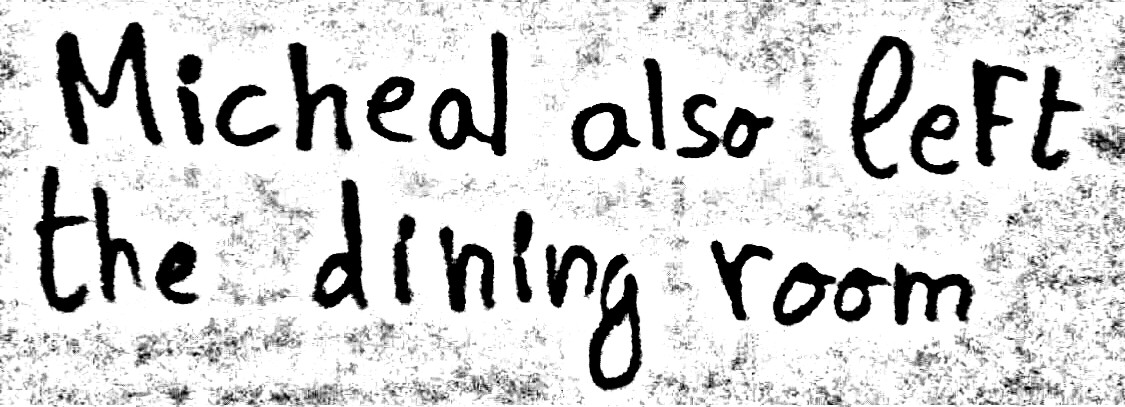 Micheal also left
the dining room